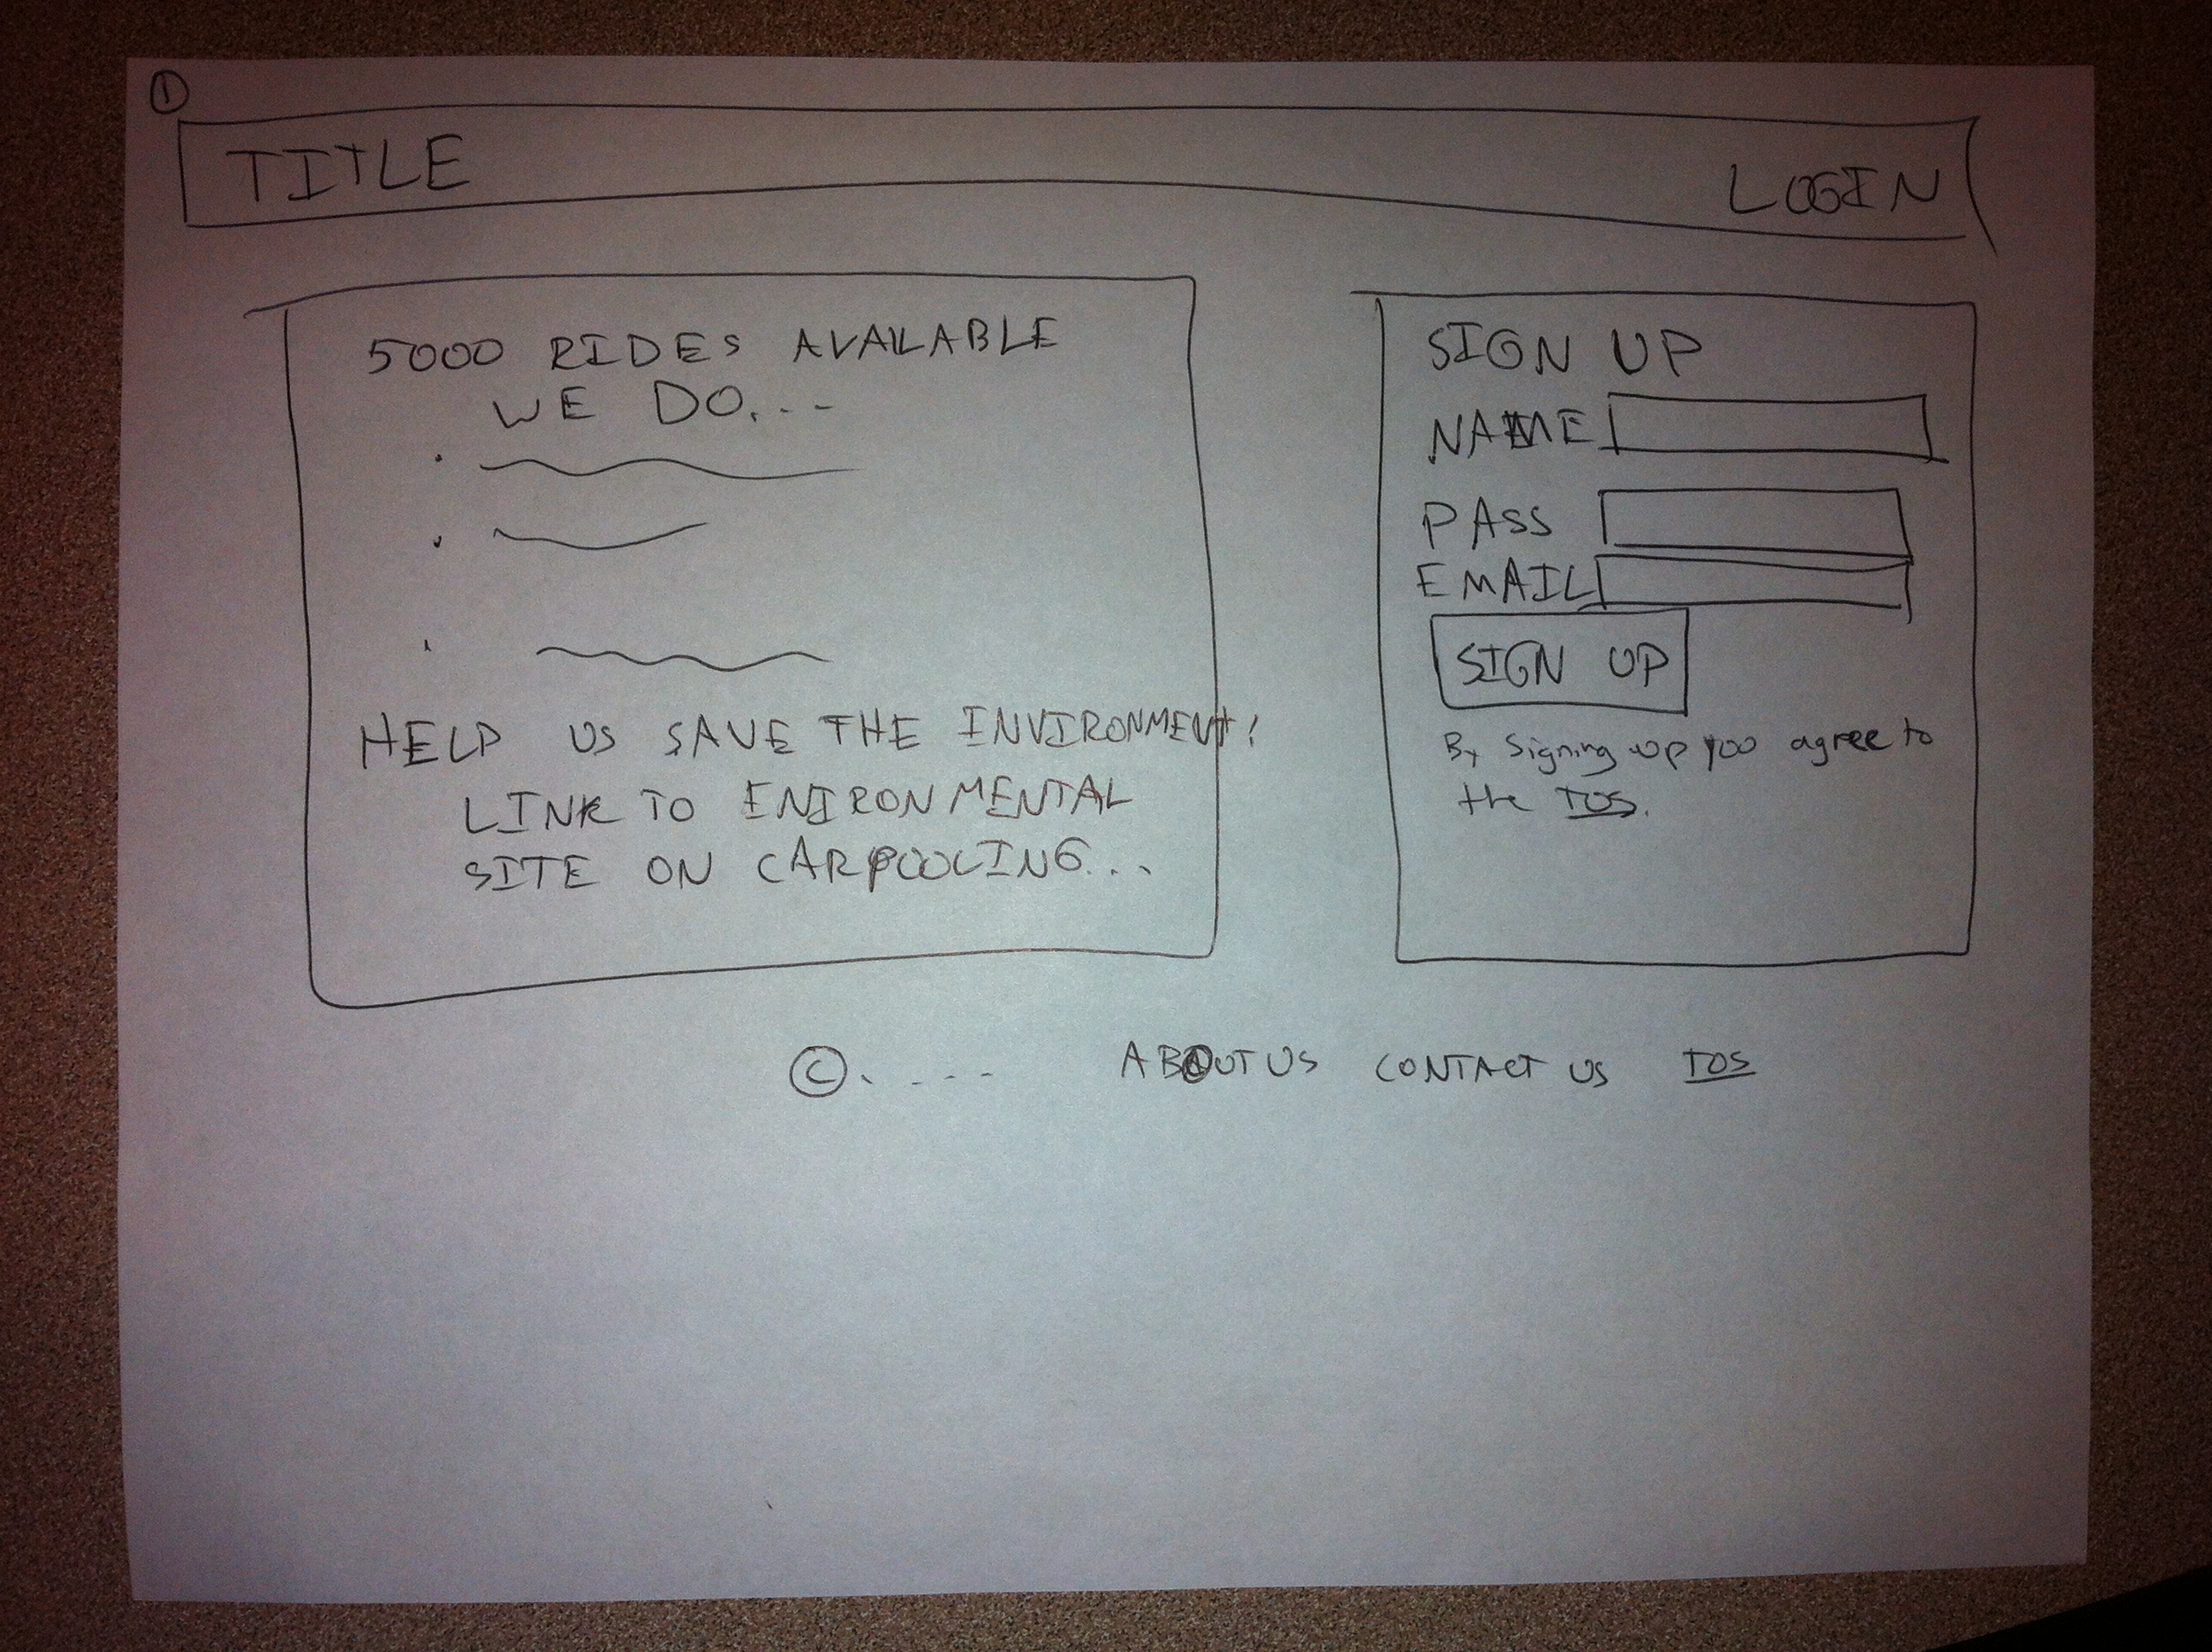 1
TITLE LOGIN
5000 RIDES AVAILABLE
WE DO....
HELP US SAVE THE ENVIRONMENT!
LINK TO ENIRONMENTAL
SITE ON CARPOOLING...
SIGN UP
NAME
PASS
EMAIL
SIGN UP
By signing up you agree to
the TOS.
© ..... ABOUT US CONTACT US TOS